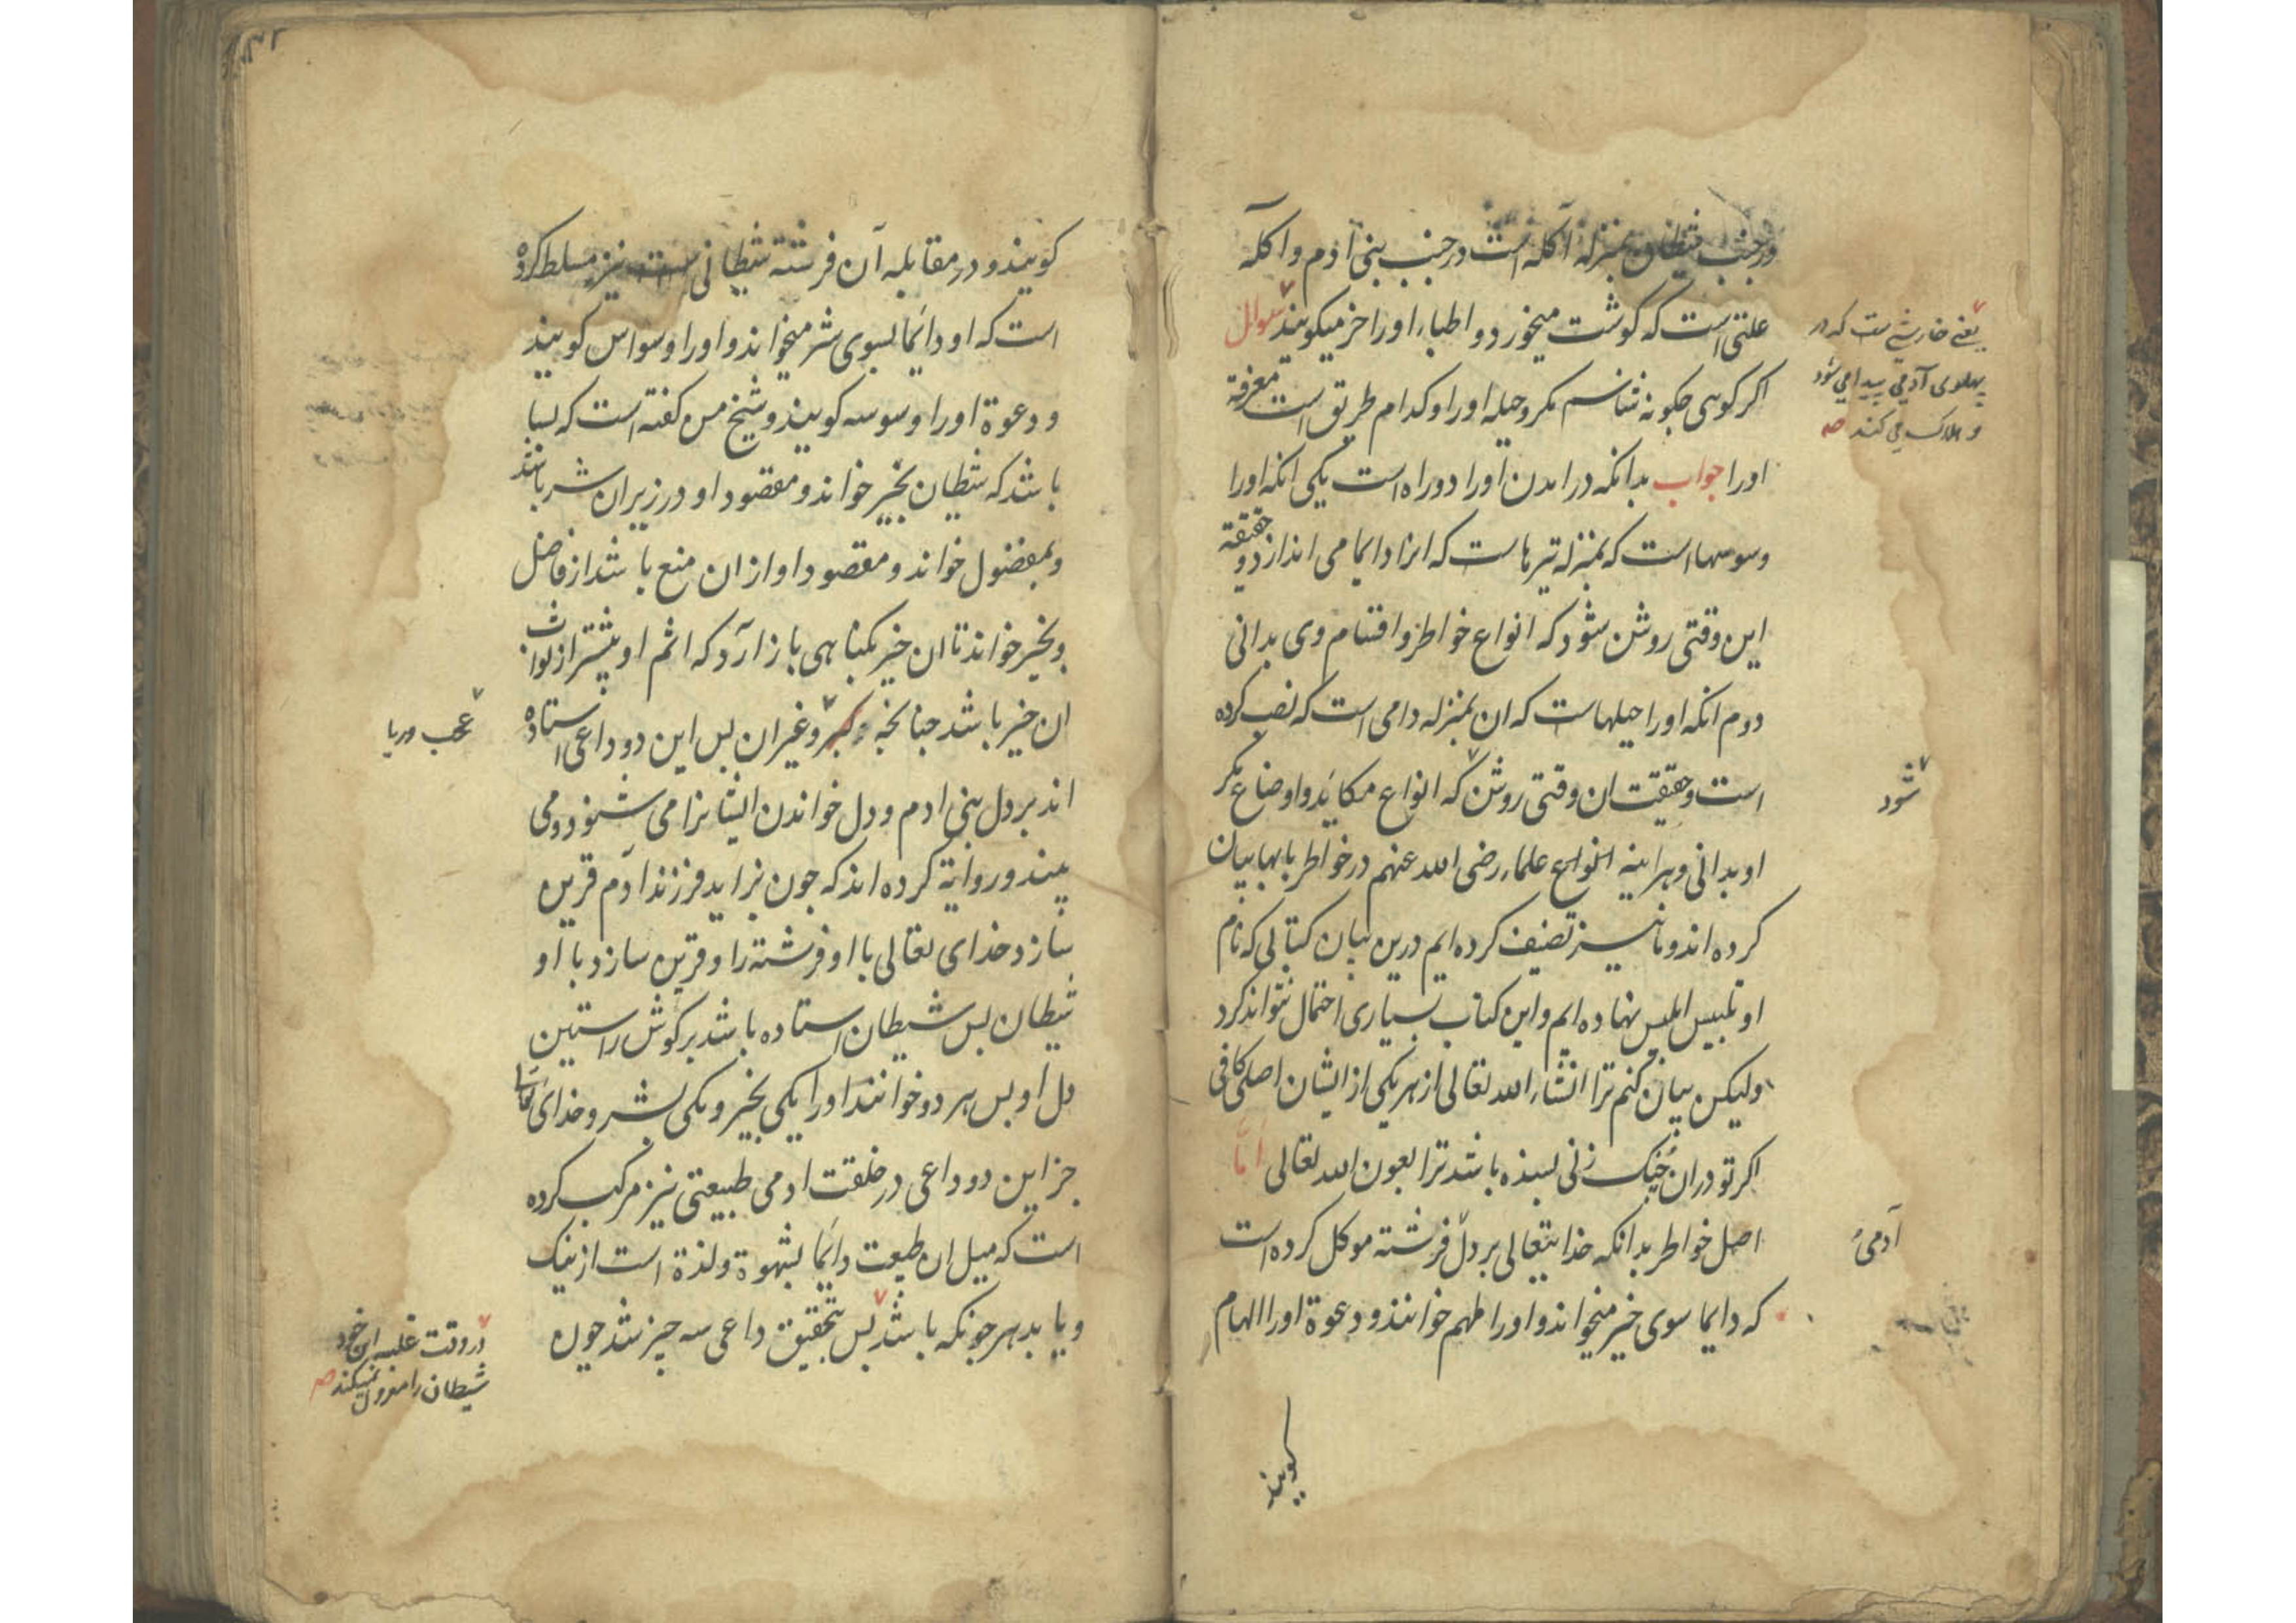 در جنب شیطان بمنزله آکله است در جنب بنی آدم و آکله
علتی است که کوشت میخورد و اطباء او را خر میکویند سوال
یعنی خارشے ست که در
پهلوی آدمی پیدا می شود
و هلاک می کند صہ
اکر کوی چکونه شناسم مکر و حیله او را و کدام طریق است معرفة
او را جواب بدانکه در امدن او را دو راه است یکی انکه او را
وسوسها است که بمنزله تیرها است که انرا دایما می اندازد و حقیقة
این وقتی روشن شود که انواع خواطر و اقسام وی بدانی
دوم انکه او را حیلهاست که ان بمنزله دامی است که نصب کرده
است و حقیقت ان وقتی روشن که انواع مکائد و اوضاع مکر
شود
او بدانی و هراینه انواع علماء رضی الله عنهم در خواطر بابها بیان
کرده اند و ما نیز تصنیف کرده ایم درین بیان کتابی که نام
او تلبیس ابلیس نهاده ایم و این کتاب بسیاری احتمال نتواند کرد
ولیکن بیان کنم ترا انشاء الله تعالی از هر یکی از ایشان اصلی کافی
اکر تو دران چنک زنی بسنده باشد ترا بعون الله تعالی اما
اصل خواطر بدانکه خدایتعالی بر دل فرشته موکل کرده است
آدمیٔ
که دایما سوی خیر میخواند و او را ملهم خوانند و دعوة او را الهام
کویند
کویند و در مقابله آن فرشته شیطانی نیز مسلط کرده
است که او دائما بسوی شر میخواند و او را وسواس کویند
و دعوة او را وسوسه کویند و شیخ من کفته است که بسا
باشد که شیطان بخیر خواند و مقصود او در زیر ان شر باشد
و بمفضول خواند و مقصود او ازان منع باشد از فاضل
و بخیر خواند تا ان خیر بکناهی باز آرد که اثم او بیشتر از ثواب
ان خیر باشد چنانچه کبر و غیر ان بس این دو داعی استاده
عجب و ریا
اند بر دل بنی ادم و دل خواندن ایشانرا می شنود و می
بیند و روایة کرده اند که چون بزاید فرزند آدم قرین
سازد خدای تعالی با او فرشته را و قرین سازد با او
شیطان بس شیطان استاده باشد بر کوش راستین
دل او بس هر دو خوانند او را یکی بخیر و یکی بشر و خدای تعالی
جز این دو داعی در خلقت ادمی طبیعتی نیز مرکب کرده
است که میل ان طبیعت دائما بشهوة و لذة است از نیک
و یا بد هر چونکه باشد بس بتحقیق داعی سه چیز شد چون
در وقت غلبه این خود
شیطان را